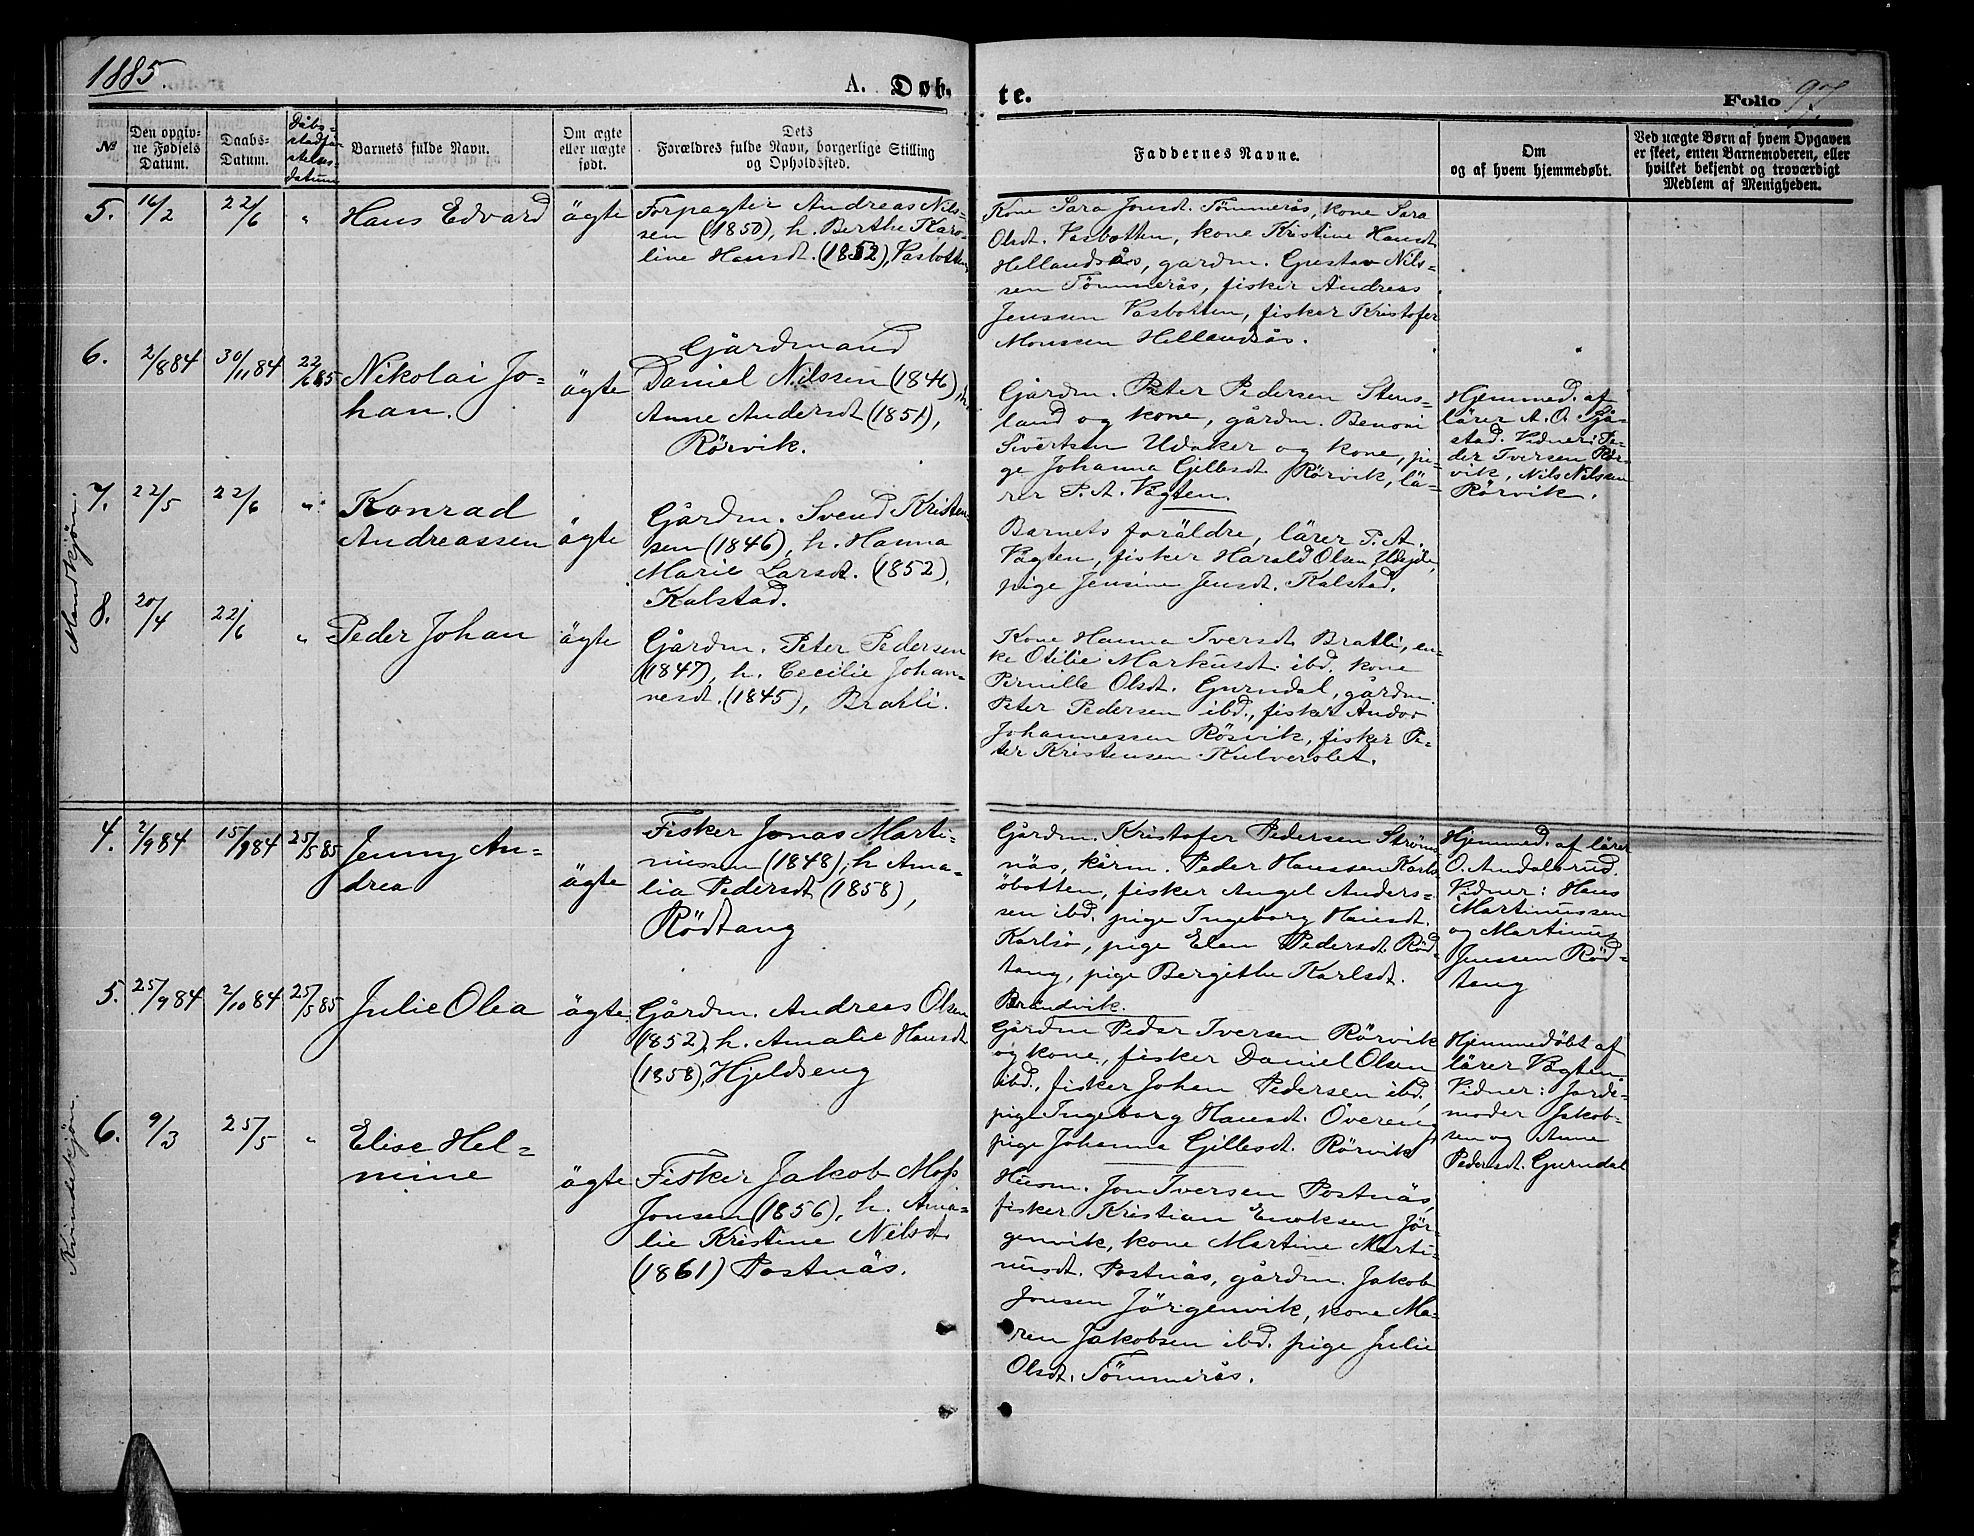 1885.
A. Døb-
te.
Folio 97.
№
Den opgiv-
ne Fødsels
Datum.
Daabs-
Datum.
Dåbs-
stadfä-
stelses-
datum
Barnets fulde Navn.
Om ægte
eller uægte
født.
Dets
Forældres fulde Navn, borgerlige Stilling
og Opholdssted.
Faddernes Navne.
Om
og af hvem hjemmedøbt.
Ved uægte Børn af hvem Opgaven
er skeet, enten Barnemoderen, eller
hvilket bekjendt og troværdigt
Medlem af Menigheden.
Mandkjøn.
5.
16/2
22/6
"
Hans Edvard
ägte
Forpagter Andreas Nils-
sen (1850), h. Berthe Karo-
line Hansdt. (1852), Vasbotten
Kone Sara Jonsdt. Tømmerås, kone Sara
Olsdt. Vasbotten, kone Kristine Hansdt.
Hellandsås, gårdm. Gustav Nils-
sen Tömmerås, fisker Andreas
Jenssen Vasbotten, fisker Kristofer
Monssen Hellandsås.
6.
2/8 84
30/11 84
22/6 85
Nikolai Jo-
han.
ägte
Gårdmand
Daniel Nilssen (1846), h.
Anne Andersdt (1851),
Rörvik.
Gårdm. Peter Pedersen Stens-
land og kone, gårdm. Benoni
Sivertsen Udaker og kone, pi-
ge Johanna Gillesdt. Rörvik, lä-
rer P. A. Vagten.
Hjemmed. af
lärer A. O. Sjå-
stad. Vidner: Pe-
der Iversen Rör-
vik, Nils Nilssen
Rörvik.
7.
22/5
22/6
"
Konrad
Andreassen
ägte
Gårdm. Svend Kristen-
sen (1846), h. Hanna
Marie Larsdt. (1852),
Kalstad.
Barnets foräldre, lärer P. A.
Vagten, fisker Harald Olsen
pige Jensine Jensdt. Kalstad.
8.
20/4
22/6
"
Peder Johan
ägte
Gårdm. Peter Pedersen
(1847), h. Cecilie Johan-
nesdt. (1845), Bratli.
Kone Hanna Iversdt. Bratli, en-
ke Otilie Markusdt. ibd. kone
Pernille Olsdt. Gurndal, gårdm.
Peter Pedersen ibd., fisker Andor
Johannessen Rösvik, fisker Pe-
ter Kristensen Kulverslet.
Kvindekjön.
4.
2/9 84
15/9 84
25/5 85
Jenny An-
drea
ägte
Fisker Jonas Marti-
nussen (1848), h. Ama-
lia Pedersdt (1858),
Rödtang
Gårdm. Kristofer Pedersen Ströms-
näs, kårm. Peder Hanssen Karls-
öbotten, fisker Angel Anders-
sen ibd. pige Ingeborg Hansdt.
Karlsö, pige Elen Pedersdt. Röd-
tang, pige Bergithe Karlsdt.
Brändvik.
Hjemmed. af lärer
O. Andalsrud.
Vidner: Hans
Martinussen
og Martinus
Jenssen Röd-
tang
5.
25/9 84
2/10 84
25/5 85
Julie Olea
ägte
Gårdm. Andreas Olsen
(1852), h. Amalie Hansdt
(1858), Hjeldseng
Gårdm Peder Iversen Rörvik
og kone, fisker Daniel Olsen
ibd., fisker Johan Pedersen ibd,
pige Ingeborg Hansdt. Övereng
pige Johanna Gillesdt. Rörvik
Hjemmedöbt af
lärer Vagten
Vidner: Jorde-
moder Jakob-
sen og Anne
Pedersdt. Gurndal
6.
9/3
25/5
"
Elise Hel-
mine
ägte
Fisker Jakob Moss
Jonsen (1856), h. Ama-
lie Kristine Nilsdt.
(1861) Postnäs.
Husm. Jon Iversen Postnäs,
fisker Kristian Enoksen Jör-
genvik, kone Martine Marti-
nusdt. Postnäs, gårdm. Jakob
Jonsen Jörgenvik, kone Ma-
ren Jakobsen ibd. pige Julie
Olsdt. Tömmerås.